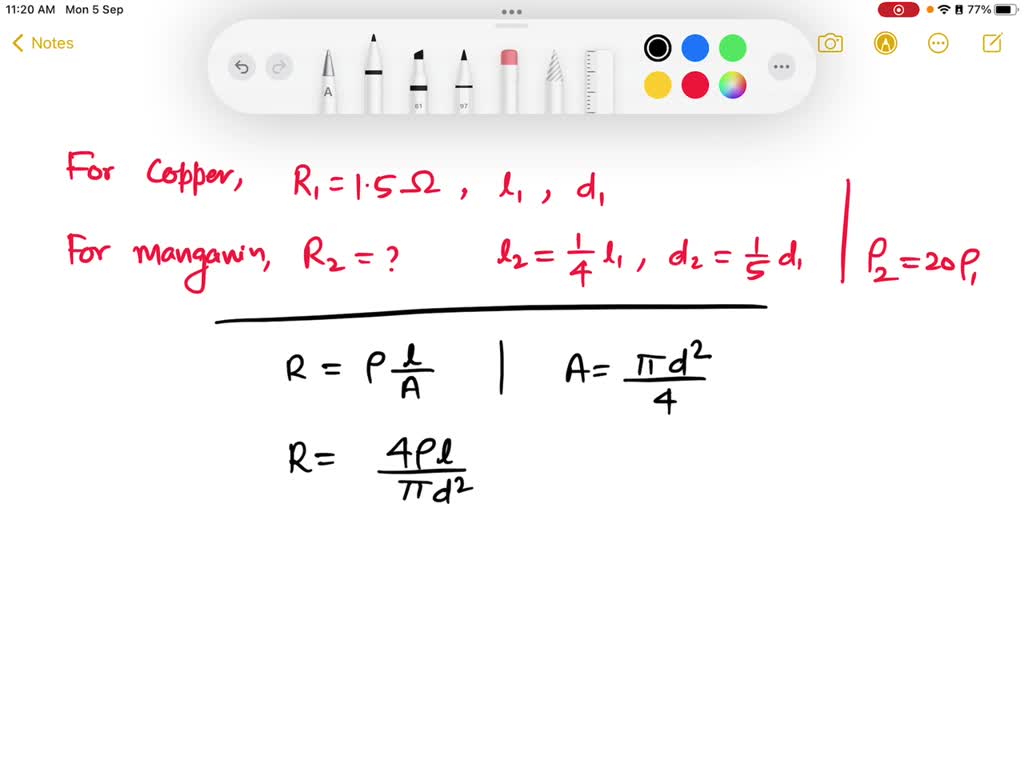 11:20 AM Mon 5 Sep 77%
Notes
A 81 97
For Copper, R₁ = 1.5 Ω, l₁, d₁
For manganin, R₂ = ? l₂ = 1/4 l₁, d₂ = 1/5 d₁ | ρ₂ = 20 ρ₁
R = ρ l/A | A = πd²/4
R = 4ρl/πd²